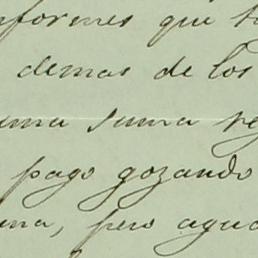 nformes que
demas de los
uma suma
pago gozando
una, pero